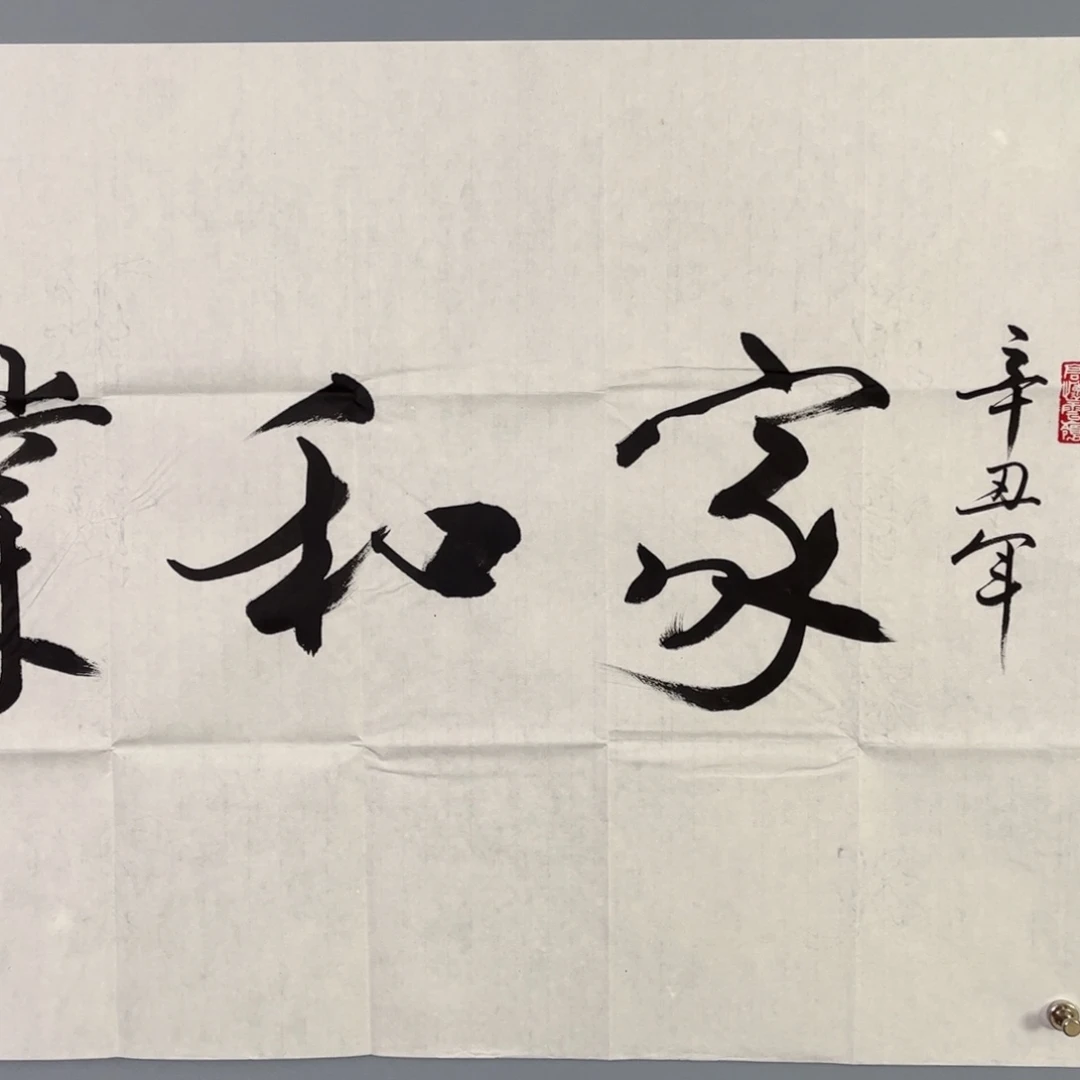 辛丑年
家和